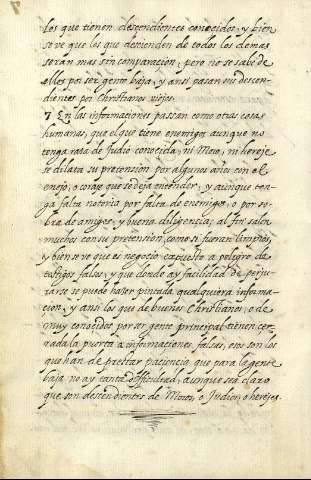 los que tienen descendientes conocidos, y bien
se ve que los que descienden de todos los demas
seran mas sin comparacion, pero no se sabe de
ellos por ser gente baja, y ansi pasan sus descen-
dientes por Christianos viejos.
7 En las informaciones passan como otras cosas
humanas, que el que tiene enemigos aunque no
tenga raza de Judio conocida, ni Moro, ni hereje
se dilata su pretension por algunos años con el
enojo, o coraje que se deja entender, y aunque ten-
ga falta notoria por falta de enemigos, o por so-
bra de amigos, y buena diligencia, al fin salen
muchos con su pretension, como si fueran limpios,
y bien se ve que es negocio expuesto a peligro de
testigos falsos, y que donde ay facilidad de perju-
rarse se puede hazer pintada qualquiera informa-
cion, y ansi los que de buenos Christianos, o de
muy conocidos por ser gente principal tienen cer-
rada la puerta a informaciones falsas, estos son los
que han de prestar paciencia, que para la gente
baja no ay tanta difficultad, aunque sea claro
que son descendientes de Moros, o Judios, o herejes.